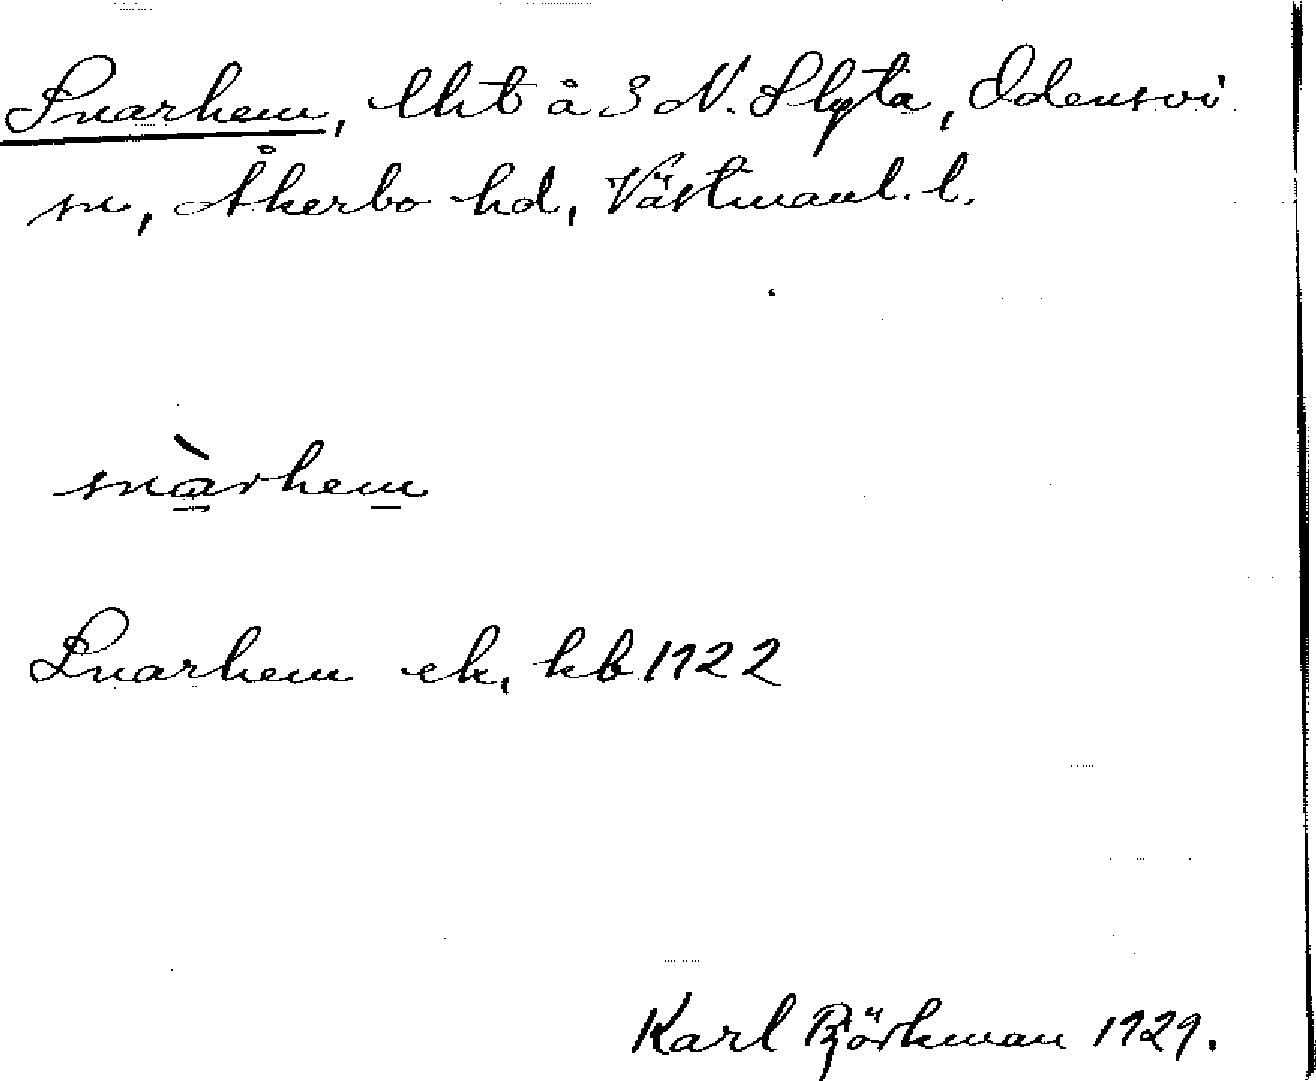 Snarhem, lht å 3 N. Slyta, Odensvi
sn, Åkerbo hd, Västmanl. l.
snàrhem
Snarhem ek, kb 1922
Karl Björkman 1929.